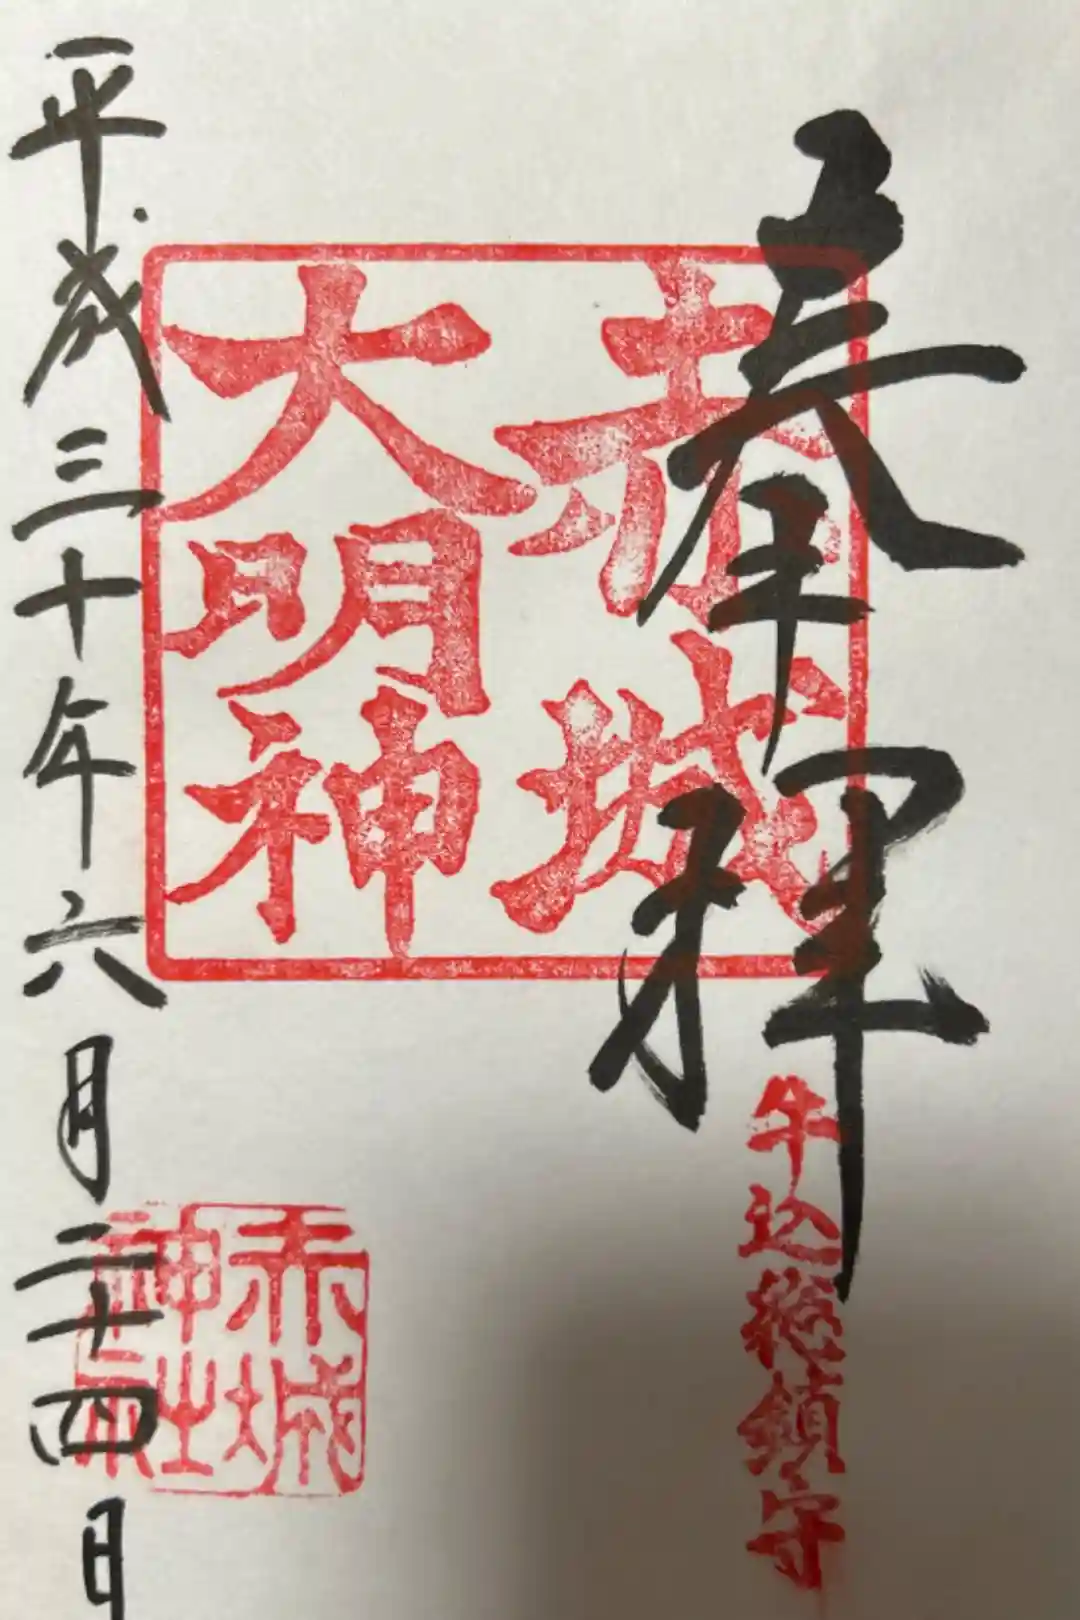 奉拝
牛込総鎮守
赤城
大明神
赤城
神社
平成三十年六月二十四日